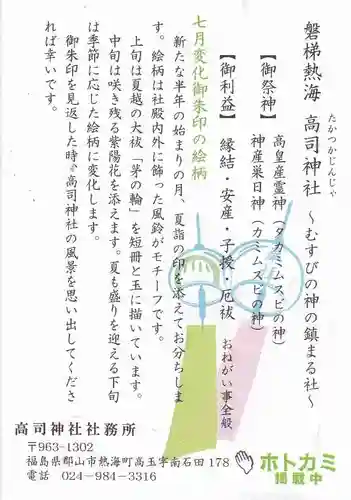 磐梯熱海 高司神社 ～むすびの神の鎮まる社～
たかつかじんじゃ
【御祭神】 高皇産霊神（タカミムスビの神）
神産巣日神（カミムスビの神）
【御利益】 縁結・安産・子授・厄祓
おねがい事全般
七月変化御朱印の絵柄
新たな半年の始まりの月、夏詣の印を添えてお分ちしま
す。絵柄は社殿内外に飾った風鈴がモチーフです。
上旬は夏越の大祓「茅の輪」を短冊と玉に描いています。
中旬は咲き残る紫陽花を添えます。夏も盛りを迎える下旬
は季節に応じた絵柄に変化します。
御朱印を見返した時、高司神社の風景を思い出してくださ
れば幸いです。
高司神社社務所
〒963-1302
福島県郡山市熱海町高玉字南石田178
電話 024-984-3316
ホトカミ
掲載中